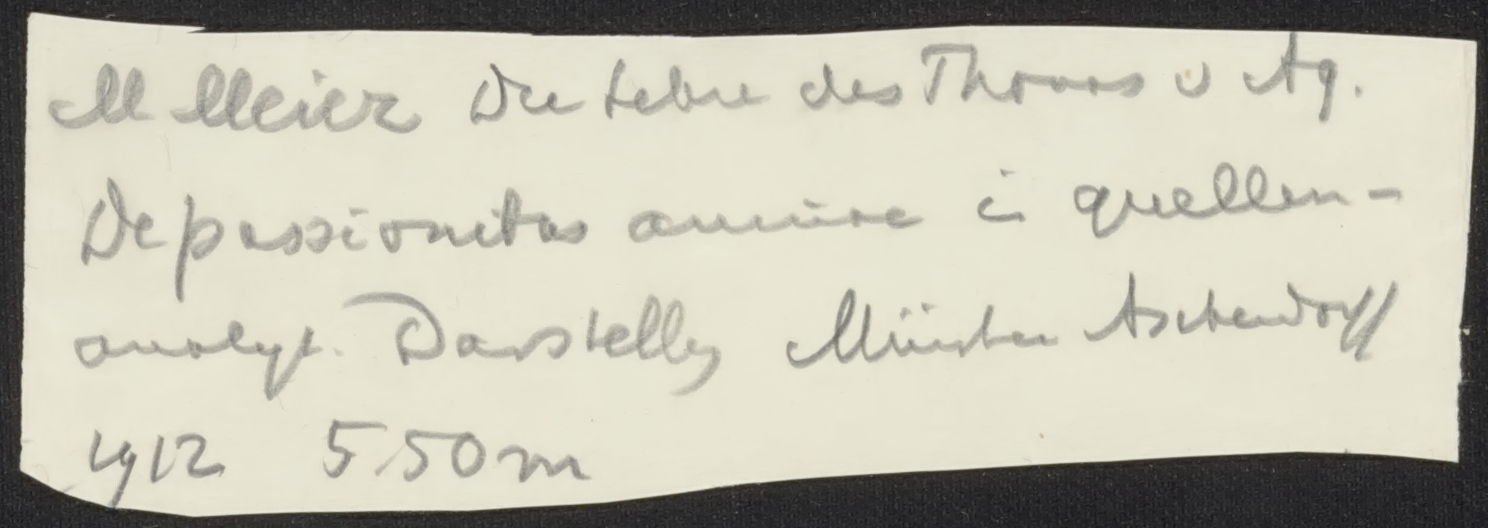 M Meier Die Lehre des Thomas v Aq.
De passionibus animae i quellen-
analyt. Darstellg Münster Aschendorff
1912 5.50 m